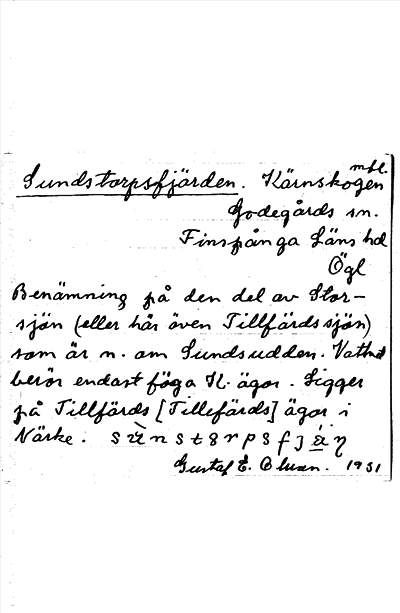 Sundstorpsfjärden. Kärnskogen mfl.
Godegårds sn.
Finspånga Läns hd
Ögl
Benämning på den del av Stor-
sjön (eller här även Tillfärdssjön)
som är n. om Sundsudden. Vattnet
berör endast föga K. ägor. Ligger
på Tillfärds [Tillefärds] ägor i
Närke.
Gustaf E. 1931